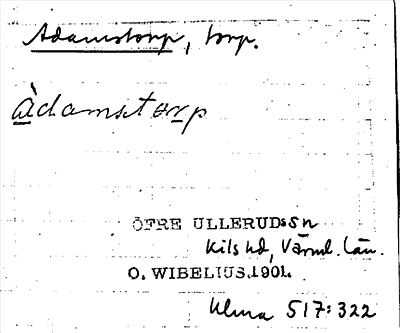 Adamstorp, torp.
àdamstorp
ÖFRE ULLERUDs sn
Kils hd, Värml. län.
O. WIBELIUS.1901.
Ulma 517:322